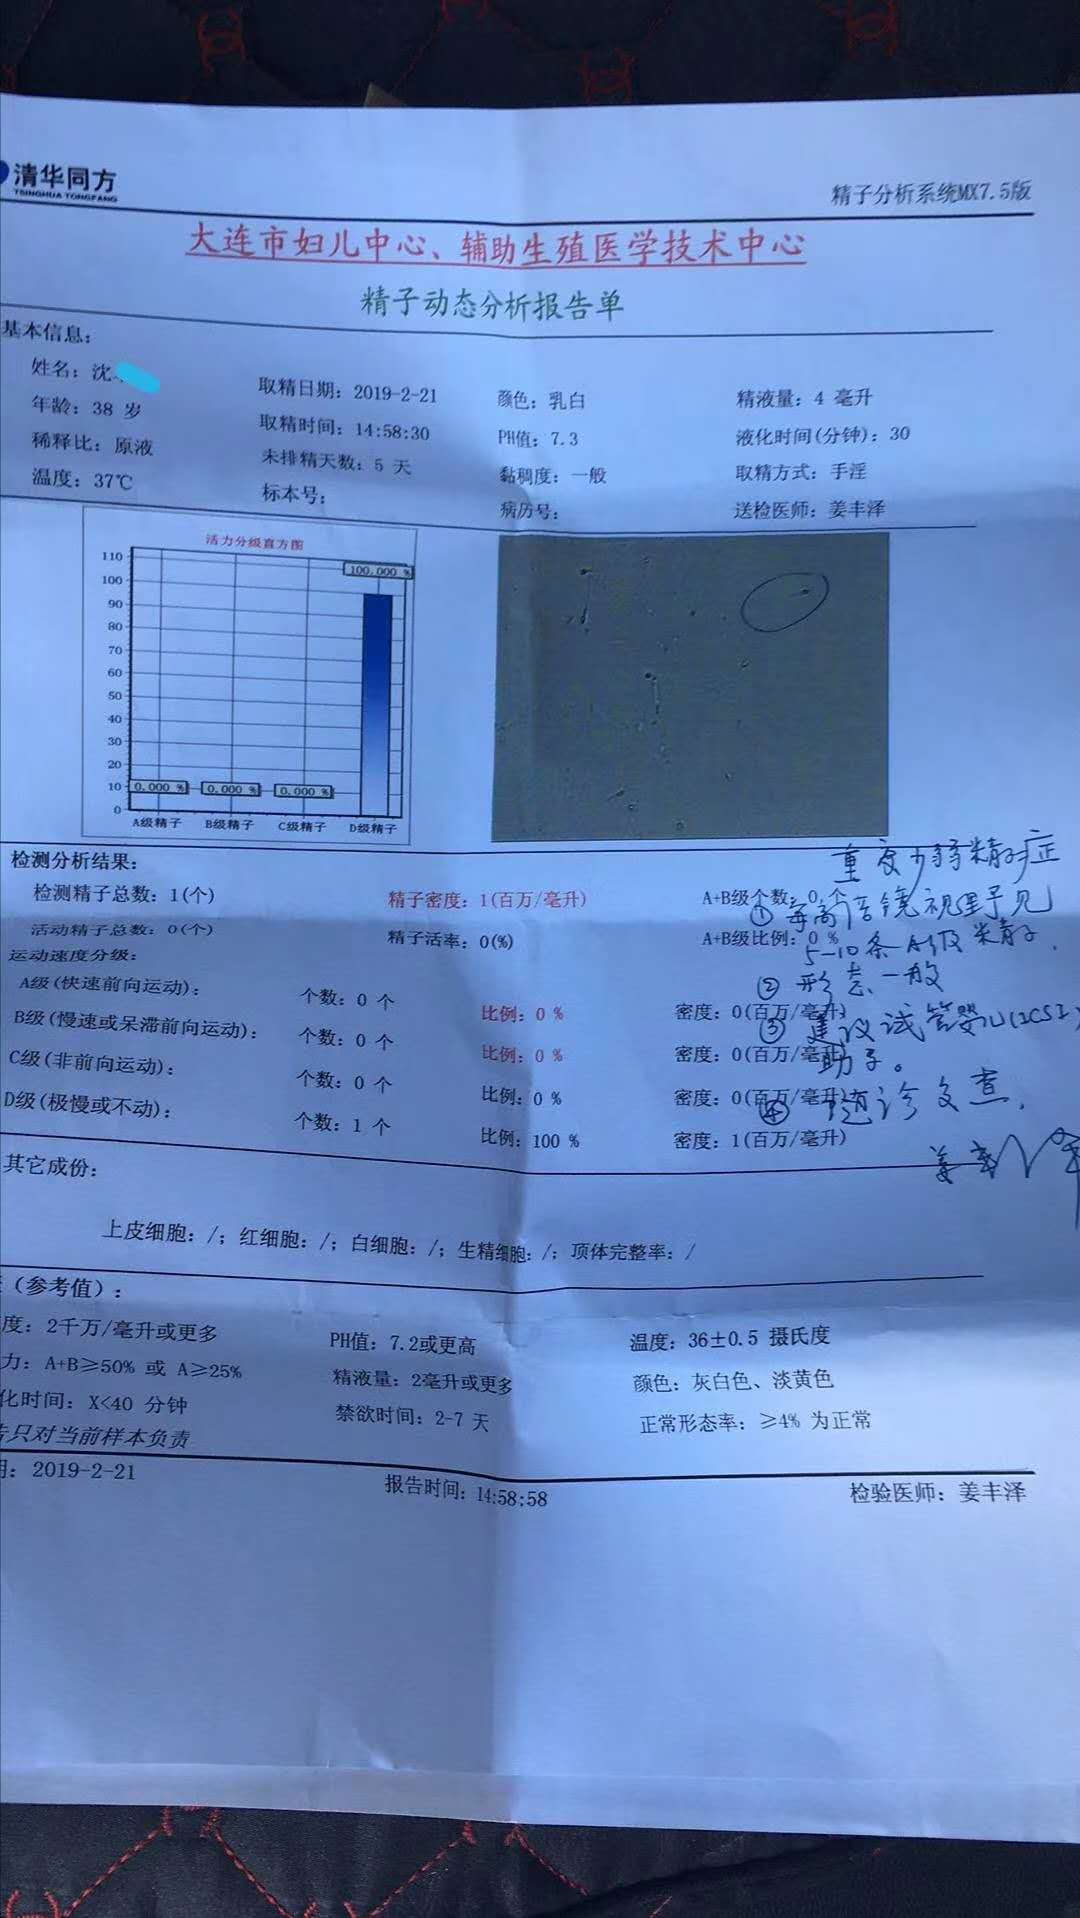 清华同方
TSINGHUA TONGFANG
精子分析系统MX7.5版
大连市妇儿中心、辅助生殖医学技术中心
精子动态分析报告单
基本信息:
姓名: 沈
取精日期: 2019-2-21
颜色: 乳白
精液量: 4 毫升
年龄: 38 岁
取精时间: 14:58:30
PH值: 7.3
液化时间(分钟): 30
稀释比: 原液
未排精天数: 5 天
黏稠度: 一般
取精方式: 手淫
温度: 37℃
标本号:
病历号:
送检医师: 姜丰泽
活力分级直方图
110
100
90
80
70
60
50
40
30
20
10
0
100.000 %
0.000 %
0.000 %
0.000 %
A级精子
B级精子
C级精子
D级精子
检测分析结果:
检测精子总数: 1(个)
精子密度: 1(百万/毫升)
A+B级个数: 0 个
活动精子总数: 0(个)
精子活率: 0(%)
A+B级比例: 0 %
运动速度分级:
A级(快速前向运动):
个数: 0 个
比例: 0 %
密度: 0(百万/毫升)
B级(慢速或呆滞前向运动):
个数: 0 个
比例: 0 %
密度: 0(百万/毫升)
C级(非前向运动):
个数: 0 个
比例: 0 %
密度: 0(百万/毫升)
D级(极慢或不动):
个数: 1 个
比例: 100 %
密度: 1(百万/毫升)
重度少弱精子症
① 每高倍镜视野见
5-10条A级精子.
② 形态一般
③ 建议试管婴儿(ICSI)
助孕。
④ 随诊复查.
其它成份:
上皮细胞: /; 红细胞: /; 白细胞: /; 生精细胞: /; 顶体完整率: /
(参考值):
度: 2千万/毫升或更多
PH值: 7.2或更高
温度: 36±0.5 摄氏度
力: A+B≥50% 或 A≥25%
精液量: 2毫升或更多
颜色: 灰白色、淡黄色
化时间: X<40 分钟
禁欲时间: 2-7 天
正常形态率: ≥4% 为正常
只对当前样本负责
期: 2019-2-21
报告时间: 14:58:58
检验医师: 姜丰泽